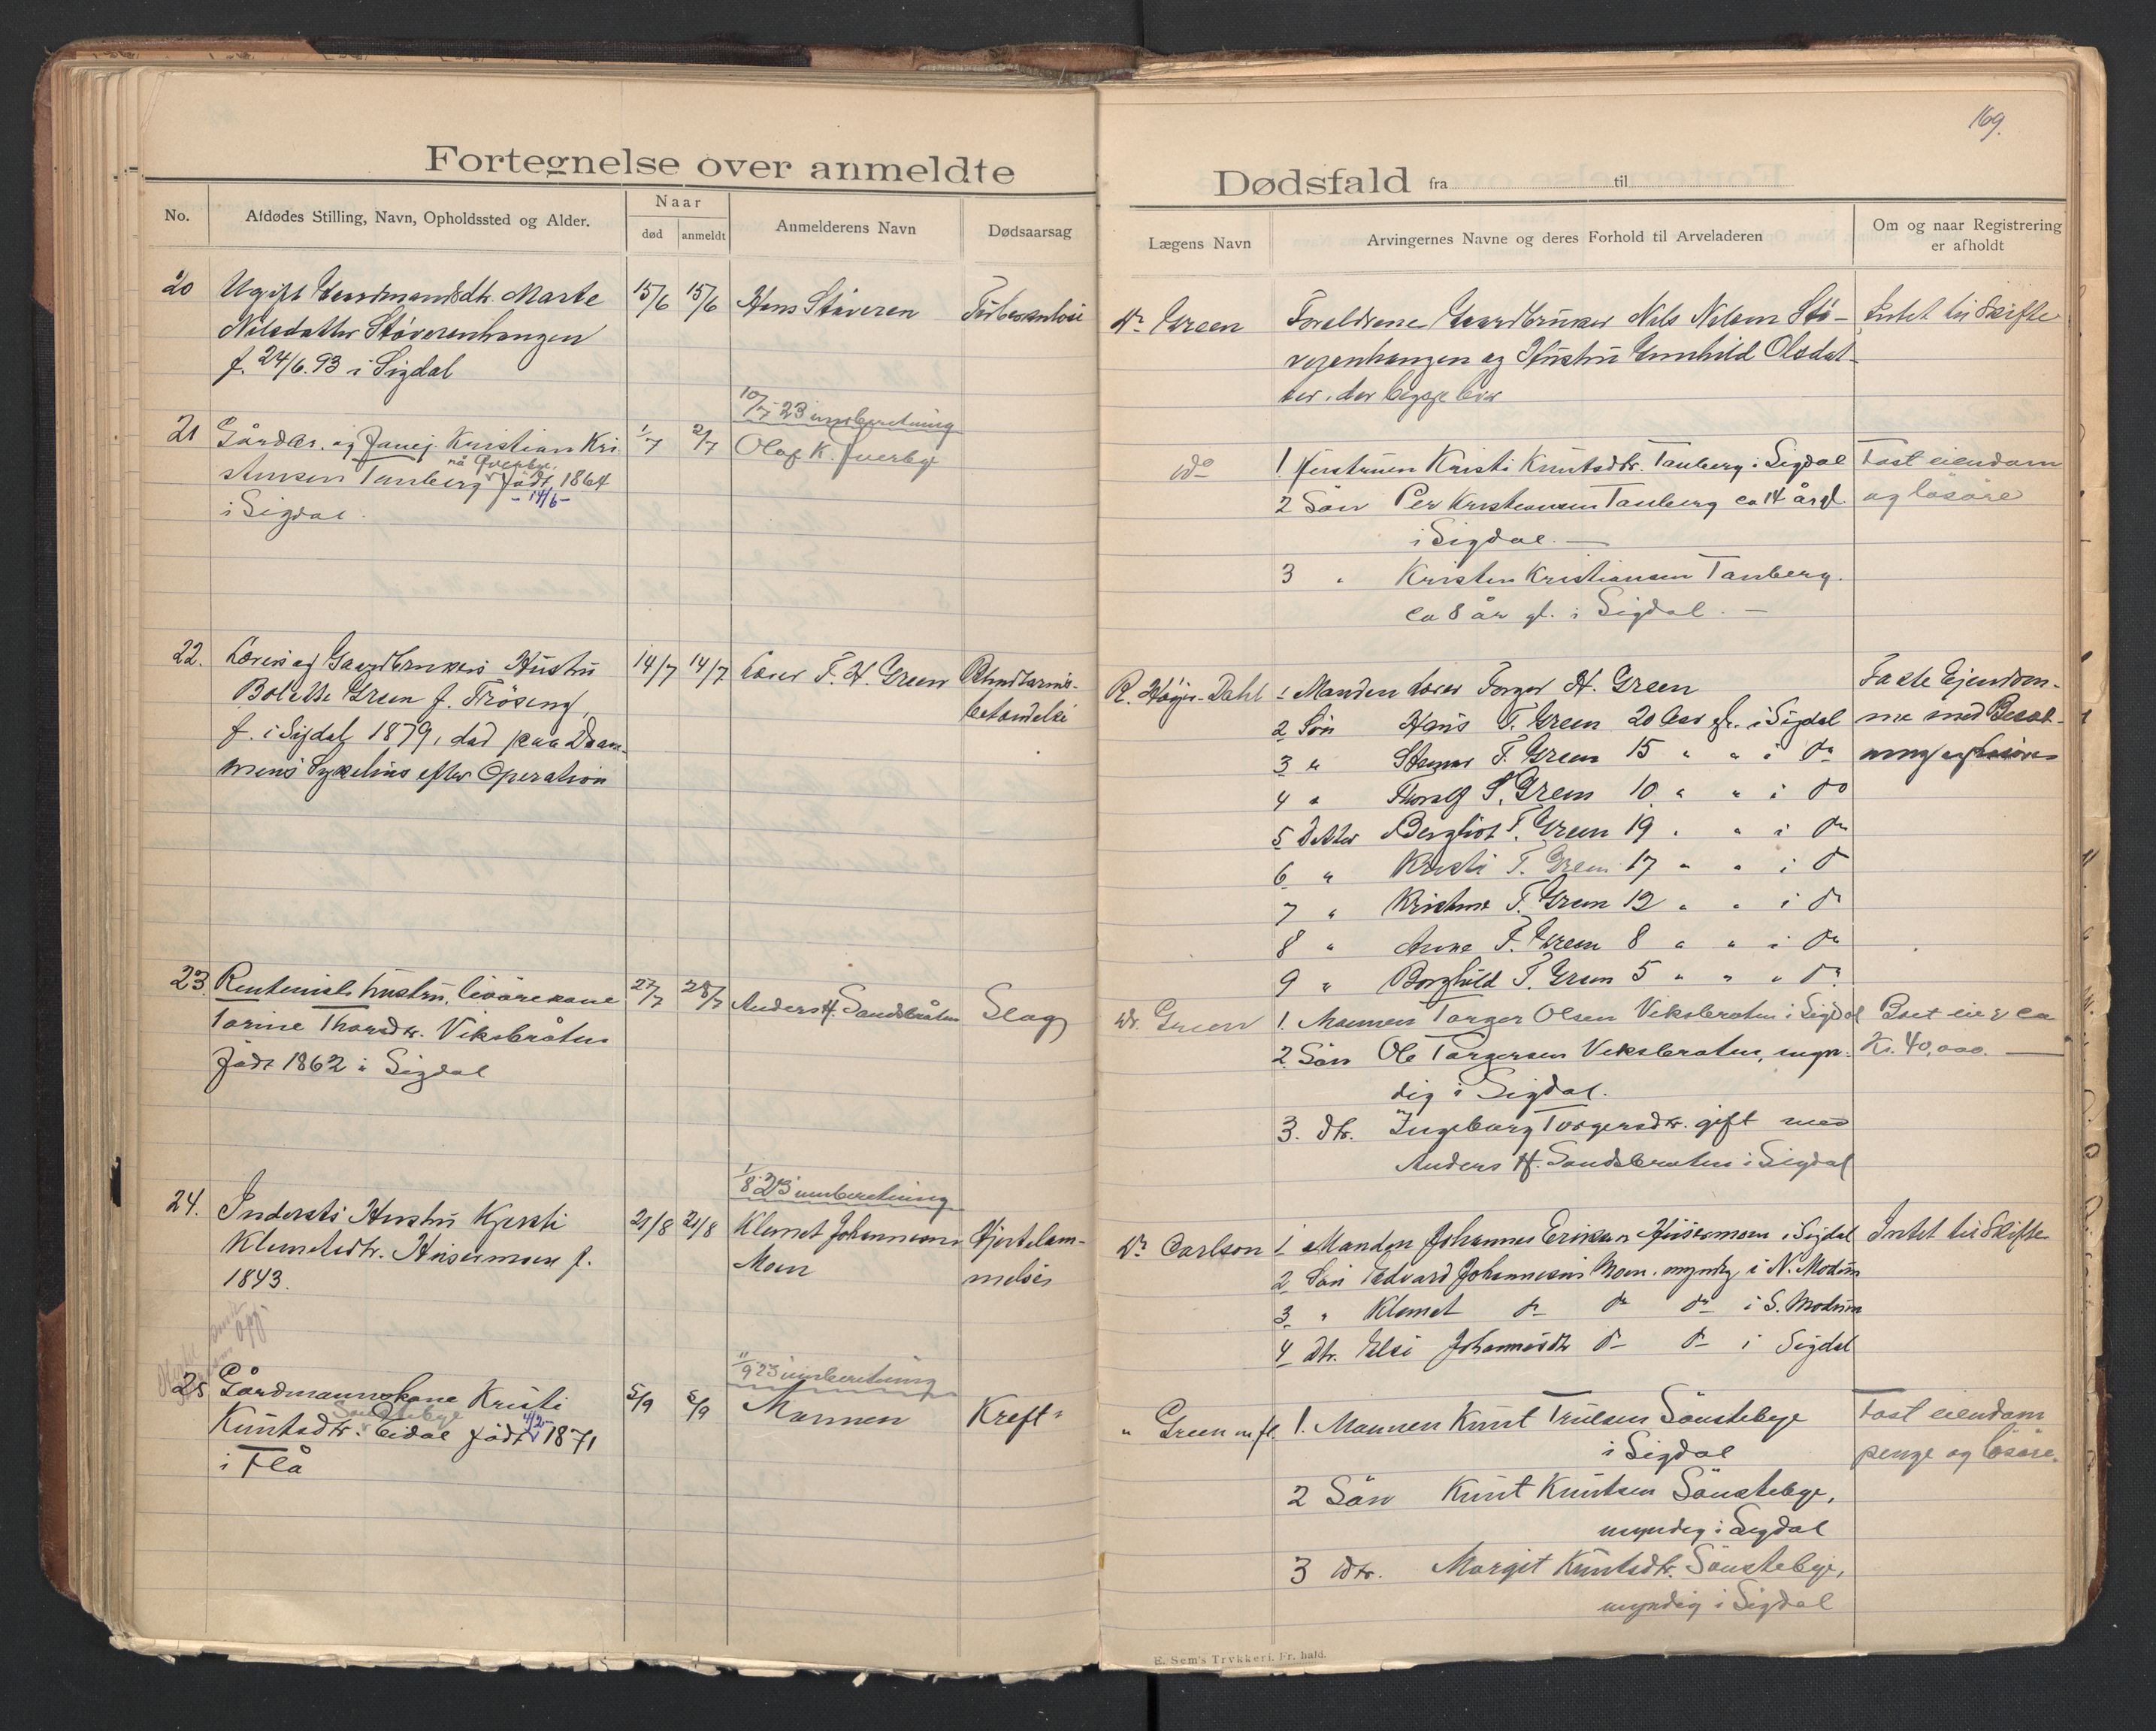 169.
Fortegnelse over anmeldte
Dødsfald fra til
No.
Afdødes Stilling, Navn, Opholdssted og Alder.
Naar
død
anmeldt
Anmelderens Navn
Dødsaarsag
Lægens Navn
Arvingernes Navne og deres Forhold til Arveladeren
Om og naar Registrering
er afholdt
20
Ugift Marte
Nilsdatter Støverenhangen
f. 24/6.93 i Sigdal
15/6
15/6
Hans Støveren
Tuberkulose
Dr Green
Foreldrene Gaardbruker Nils Nilsen Stø-
verenhangen og Hustru Gunhild Olsdat-
ter, der begge lever
Intet til Skifte
10/7 23 innberetning
21
Gårdbr. og Kristian Kri
stensen Tanberg født 1864
nå
-14/6-
i Sigdal.
1/7
2/7
Olaf K.
do
1 Hustruen Kristi Knutsdtr. Tanberg i Sigdal
2 Søn Per Kristiansen Tanberg ca 14 år gl.
i Sigdal. —
3 " Kristen Kristiansen Tanberg.
ca 8 år gl. i Sigdal. —
Fast eiendom
og løsøre
22.
Lærer og Gaardbrukers Hustru
Bolette Green f. Frøseng,
f. i Sigdal 1879, død paa Dram-
mens Sykehus efter Operation
14/7
14/7
Lærer T. H. Green
Blindtarms-
betendelse
R. Høyer-Dahl
1 Manden Lærer Torger H. Green
2 Søn Hans T. Green 20 Aar gl. i Sigdal
3 " T. Green 15 " " i do
4 " Thoralf T. Green 10 " " i do
5 Datter Bergliot T. Green 19 " " i do
6 " Kristi T. Green 17 " " i do
7 " Kristine T. Green 12 " " i do
8 " Anne T. Green 8 " " i do
9 " Borghild T. Green 5 " " " do
Faste Ejendom-
me med Besæt-
ning og Løsøre
23.
Rentenists hustru, livørekone
Torine Thorsdtr. Viksbråten
født 1862 i Sigdal
27/7
28/7
Anders H. Sandsbråten
Slag
Dr. Green
1. Mannen Torger Olsen Viksbråten i Sigdal
2. Søn Ole Torgersen Viksbråten, myn-
dig i Sigdal.
3. dtr. Ingeborg Torgersdtr. gift med
Anders H. Sandsbråten i Sigdal
Boet eier ca
Kr. 40,000. —
1/8 23 innberetning
24.
Indersts Hustru Kjersti
Klemetsdtr. Husermoen f.
1843.
21/8
21/8
Klemet Johannesen
Moen
Hjertelam-
melse
Dr Carlson
1 Manden Johannes Eriksen Husermoen i Sigdal
2 Søn Edvard Johannesen Moen. myndig i N. Modum
3 " Klemet do do do i S. Modum
4 Dtr. Elsi Johannesdtr do do i Sigdal
Intet til Skifte
11/9 23 innberetning
25
Gårdmannskone Kristi
Sønstebye
Knutsdtr. Eidal født 1871
4/2
i Flå
5/9
5/9
Mannen
Kreft
" Green m fl.
1. Mannen Knut Trulsen Sønstebye
i Sigdal
2 Søn Knut Knutsen Sønstebye,
myndig i Sigdal
3 Dtr. Margit Knutsdtr. Sønstebye,
myndig i Sigdal
Fast eiendom
penge og løsøre.
E. Sem's Trykkeri, Fr. hald.